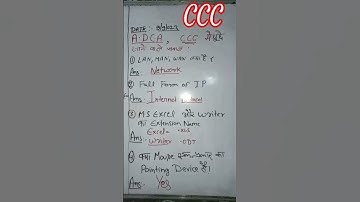 CCC
DATE:-
A.D.C.A, CCC में पूछे
जाने वाले प्रश्न
① LAN, MAN, WAN क्या है?
Ans. Network
② Full Form of IP
Ans. Internet
③ MS Excel और Writer
का Extension Name
Excel
Ans. Writer - ODT
④ क्या Mouse एक प्रकार का
Pointing Device है।
Ans. Yes